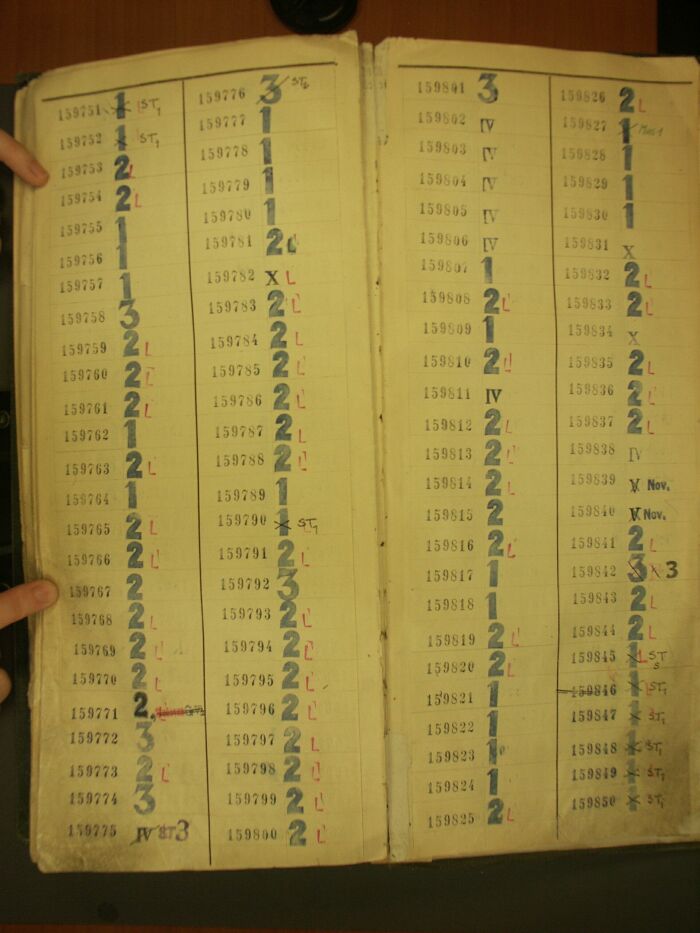 159751 1 L ST1
159752 1 ST1
159753 2 L
159754 2 L
159755 1
159756 1
159757 1
159758 3
159759 2 L
159760 2 L
159761 2 L
159762 1
159763 2 L
159764 1
159765 2 L
159766 2 L
159767 2
159768 2 L
159769 2 L
159770 2 L
159771 2
159772 3
159773 2 L
159774 3
159775 IV ST 3
159776 3
159777 1
159778 1
159779 1
159780 1
159781 2 L
159782 X L
159783 2 L
159784 2 L
159785 2 L
159786 2 L
159787 2 L
159788 2 L
159789 1
159790 1 ST1
159791 2 L
159792 3
159793 2 L
159794 2 L
159795 2 L
159796 2 L
159797 2 L
159798 2 L
159799 2 L
159800 2 L
159801 3
159802 IV
159803 IV
159804 IV
159805 IV
159806 IV
159807 1
159808 2 L
159809 1
159810 2 L
159811 IV
159812 2 L
159813 2 L
159814 2 L
159815 2
159816 2 L
159817 1
159818 1
159819 2 L
159820 2 L
159821 1
159822 1
159823 1
159824 1
159825 2 L
159826 2 L
159827 1
159828 1
159829 1
159830 1
159831 X
159832 2 L
159833 2 L
159834 X
159835 2 L
159836 2 L
159837 2 L
159838 IV
159839 V Nov.
159840 V Nov.
159841 2 L
159842 3 3
159843 2 L
159844 2 L
159845 1 L ST5
159846 1 ST1
159847 1 ST1
159848 1 ST1
159849 1 ST1
159850 1 ST1